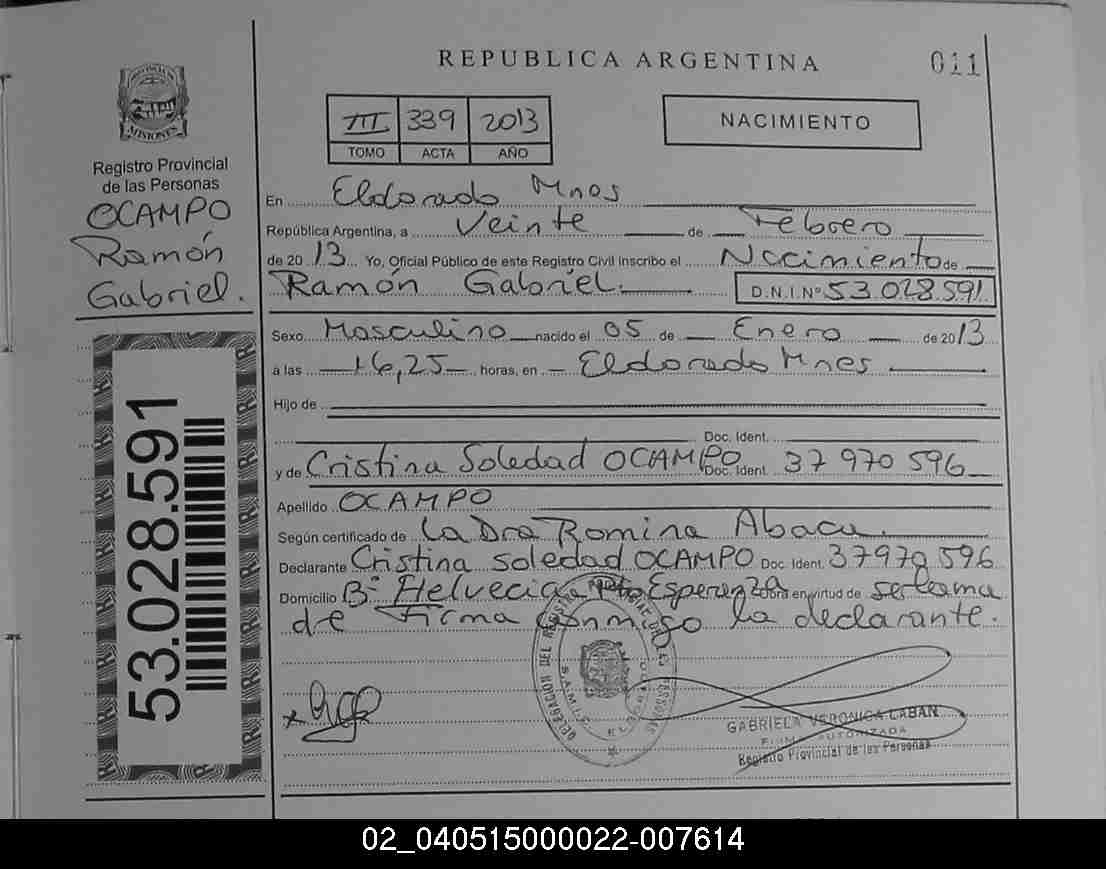 REPUBLICA ARGENTINA
011
PROVINCIA DE
MISIONES
Registro Provincial
de las Personas
OCAMPO
Ramón
Gabriel.
53.028.591
III 339 2013
TOMO ACTA AÑO
NACIMIENTO
En Eldorado Mnes
República Argentina, a Veinte de Febrero
de 2013 Yo, Oficial Público de este Registro Civil inscribo el Nacimiento de
Ramón Gabriel. D.N.I.Nº 53.028.591
Sexo Masculino nacido el 05 de Enero de 2013
a las 16,25 horas, en Eldorado Mnes
Hijo de
Doc. Ident.
y de Cristina Soledad OCAMPO Doc. Ident 37 970 596
Apellido OCAMPO
Según certificado de La Dra Romina
Declarante Cristina Soledad OCAMPO Doc. Ident. 37970 596
Domicilio Bº Helvecia Pto Esperanza Obra en virtud de ser la ma
de Firma conmigo la declarante.
DELEGACION DEL REGISTRO PROVINCIAL DE LAS PERSONAS
GABRIELA VERONICA LABAN
FIRMA AUTORIZADA
Registro Provincial de las Personas
02_040515000022-007614